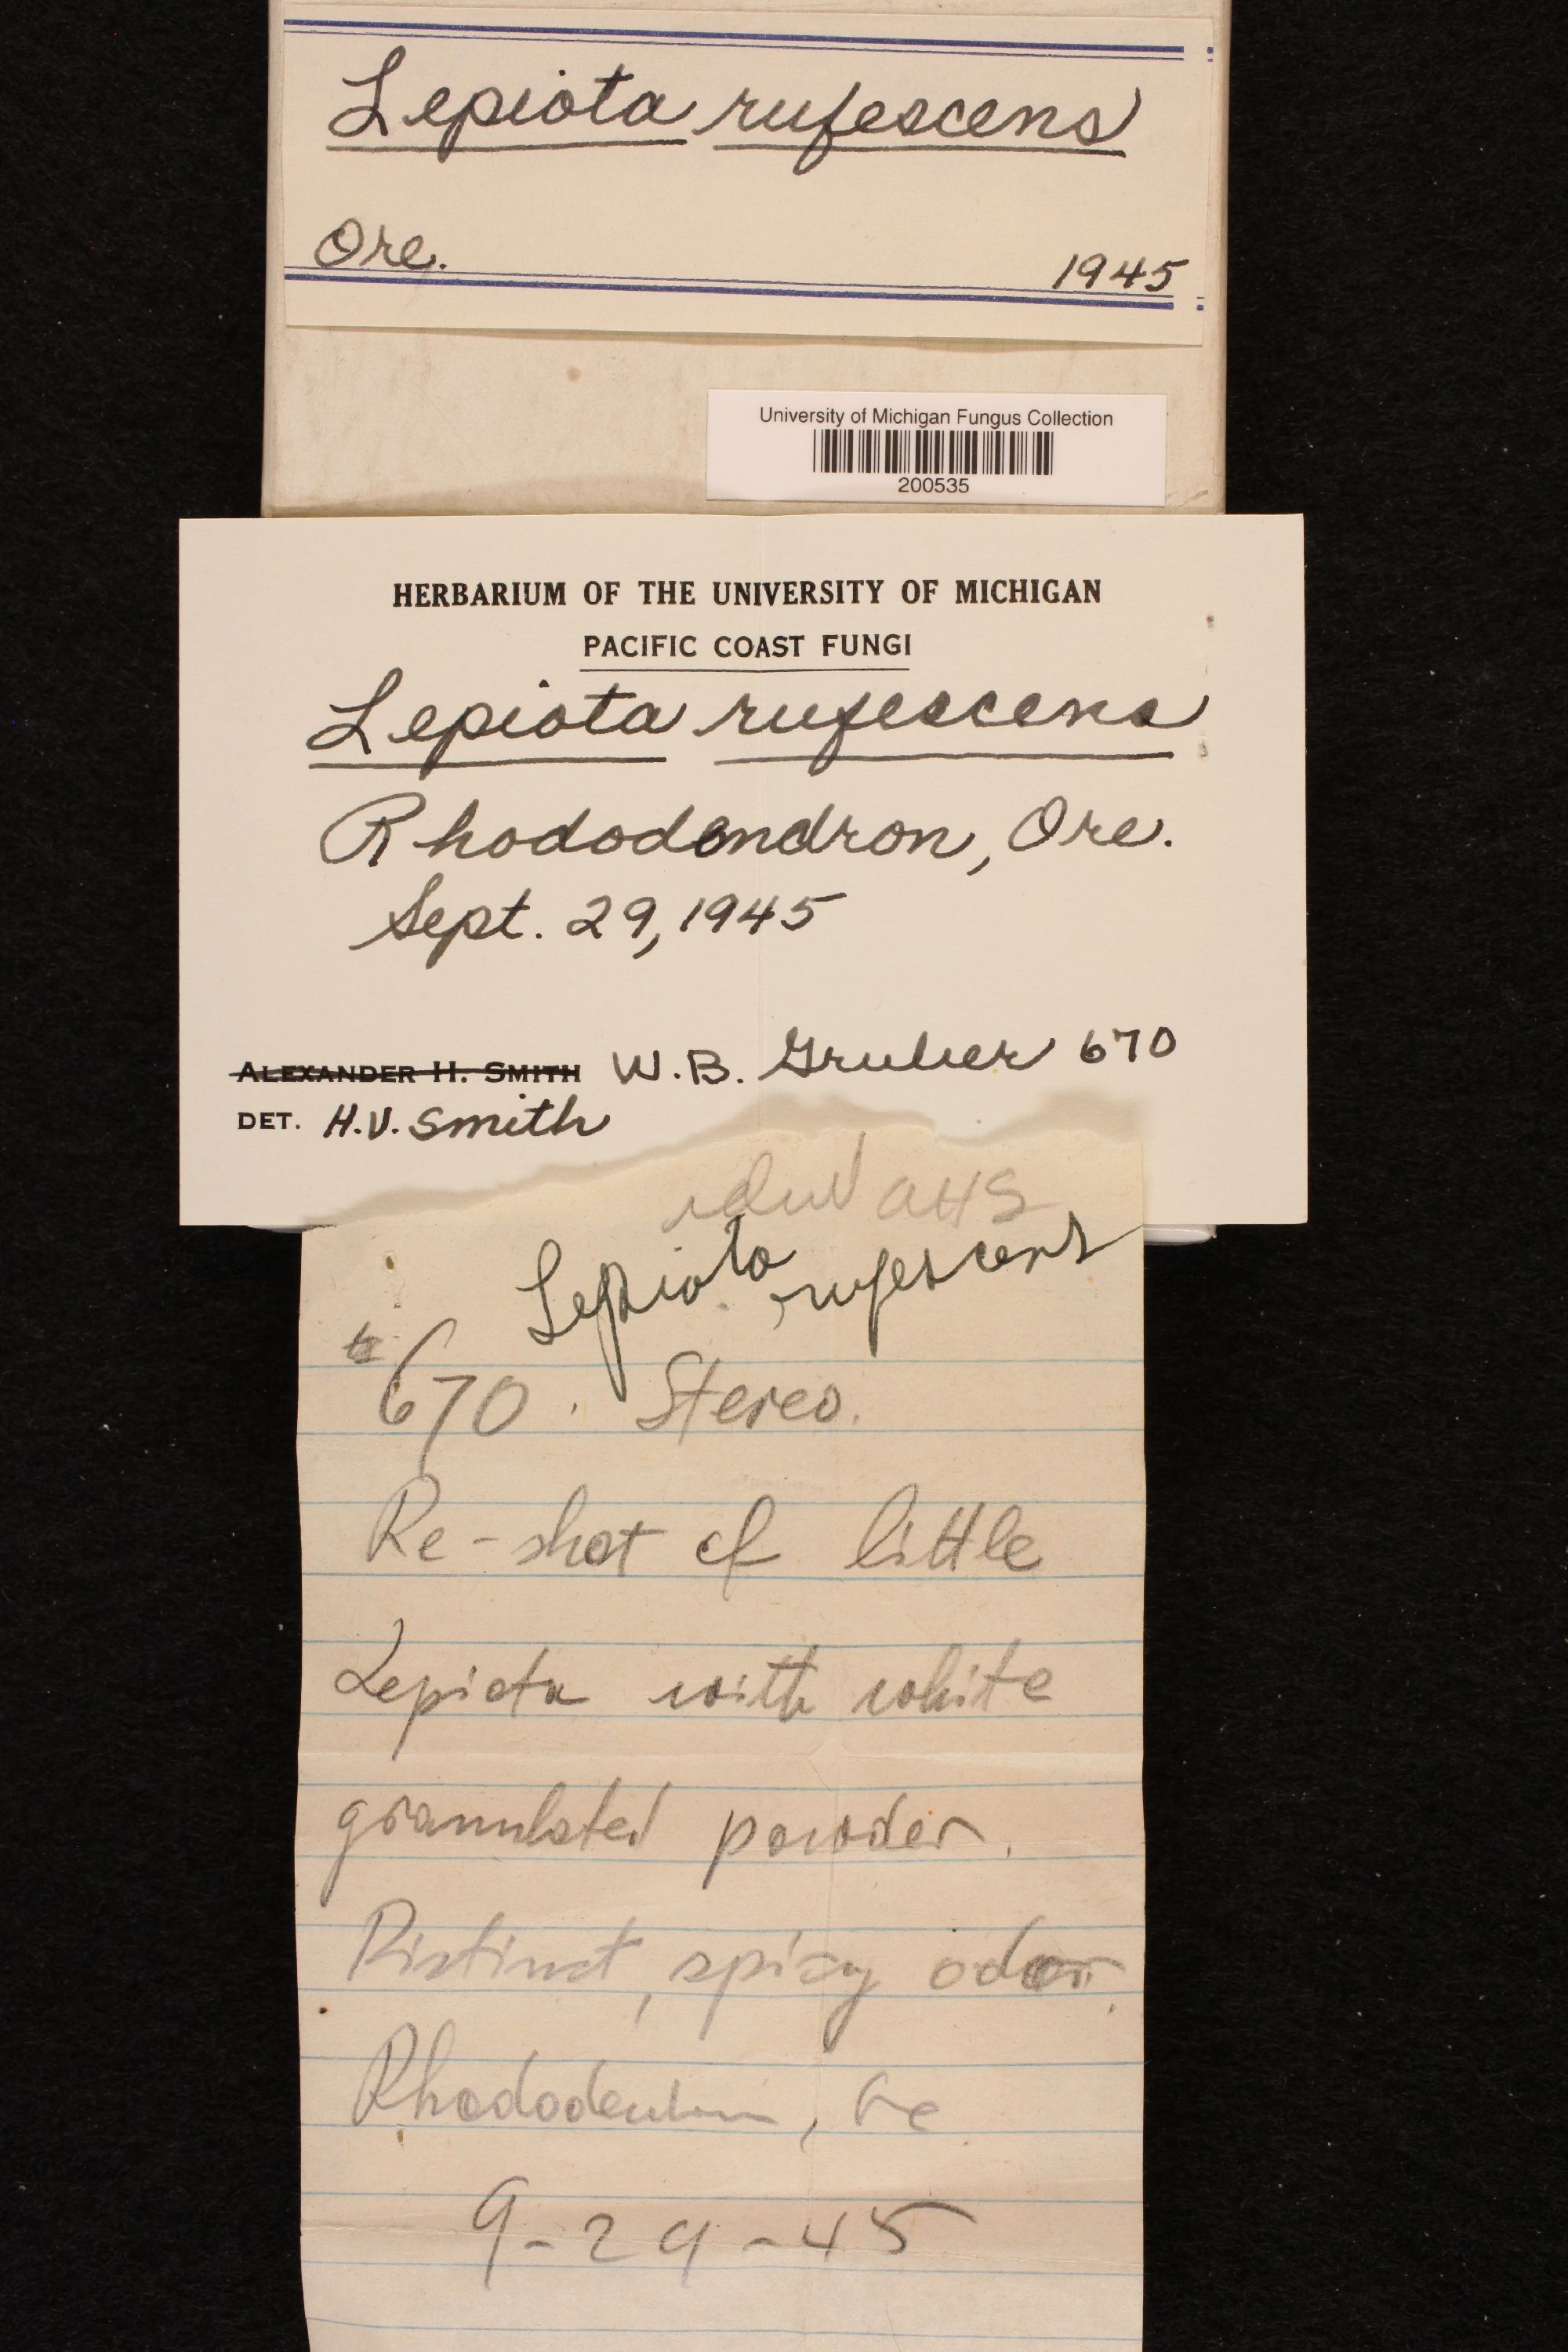 Lepiota rufescens
Ore. 1945
University of Michigan Fungus Collection
200535
HERBARIUM OF THE UNIVERSITY OF MICHIGAN
PACIFIC COAST FUNGI
Lepiota rufescens
Rhododendron, Ore.
Sept. 29, 1945
ALEXANDER H. SMITH W.B. Gruber 670
DET. H.V. Smith
AHS
Lepiota rufescens
670. Stereo.
Re-shot of little
Lepiota with white
granulated powder.
Distinct, spicy odor.
Rhododendron, Ore
9-29-45